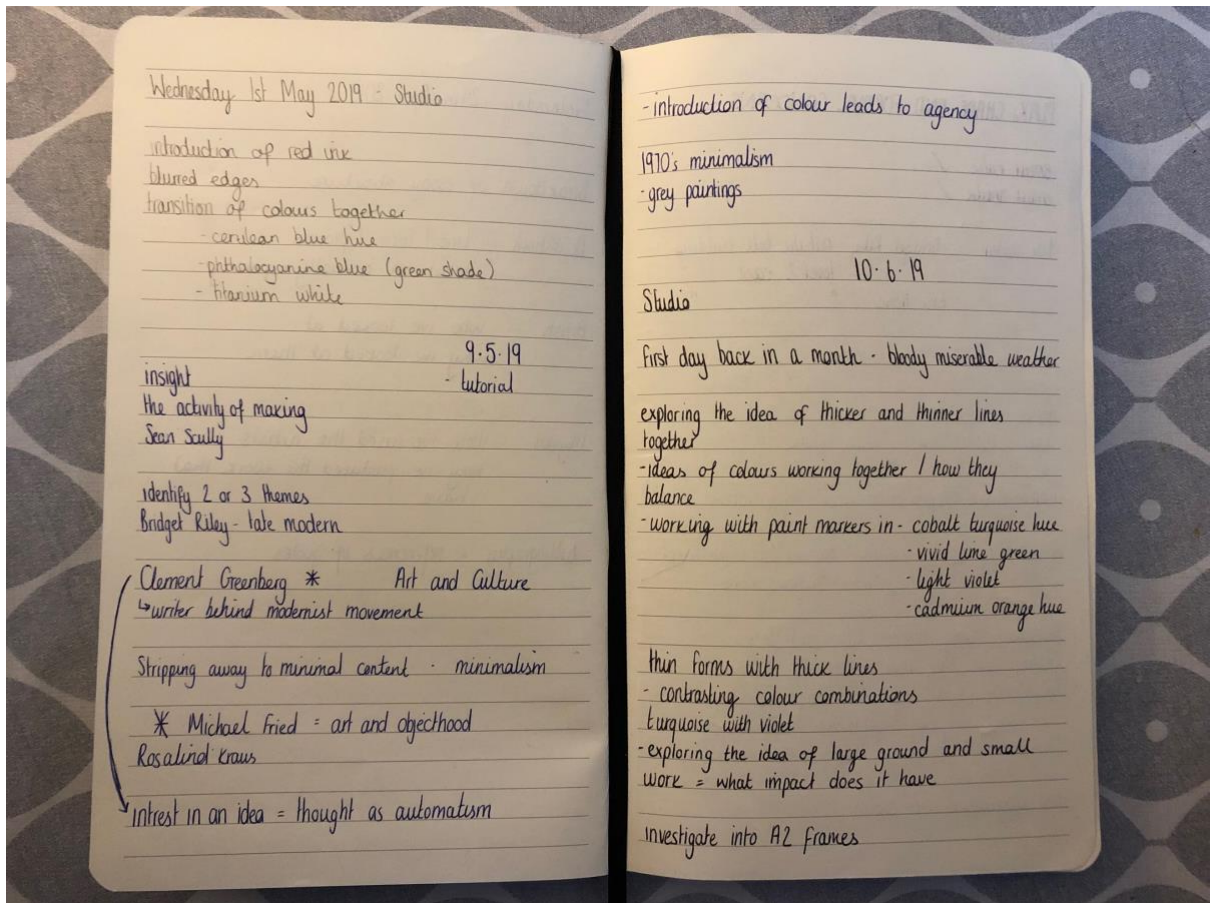 Wednesday 1st May 2019 - Studio
introduction of red ink
blurred edges
transition of colours together
- cerulean blue hue
- phthalocyanine blue (green shade)
- titanium white
9.5.19
insight - tutorial
the activity of making
Sean Scully
identify 2 or 3 themes
Bridget Riley - late modern
Clement Greenberg * Art and Culture
↳ writer behind modernist movement
Stripping away to minimal content - minimalism
* Michael Fried = art and objecthood
Rosalind Kraus
intrest in an idea = thought as automatism
- introduction of colour leads to agency
1970's minimalism
- grey paintings
10.6.19
Studio
first day back in a month - bloody miserable weather
exploring the idea of thicker and thinner lines
together
- ideas of colours working together / how they
balance
- working with paint markers in - cobalt turquoise hue
- vivid lime green
- light violet
- cadmium orange hue
thin forms with thick lines
- contrasting colour combinations
turquoise with violet
- exploring the idea of large ground and small
work = what impact does it have
investigate into A2 frames